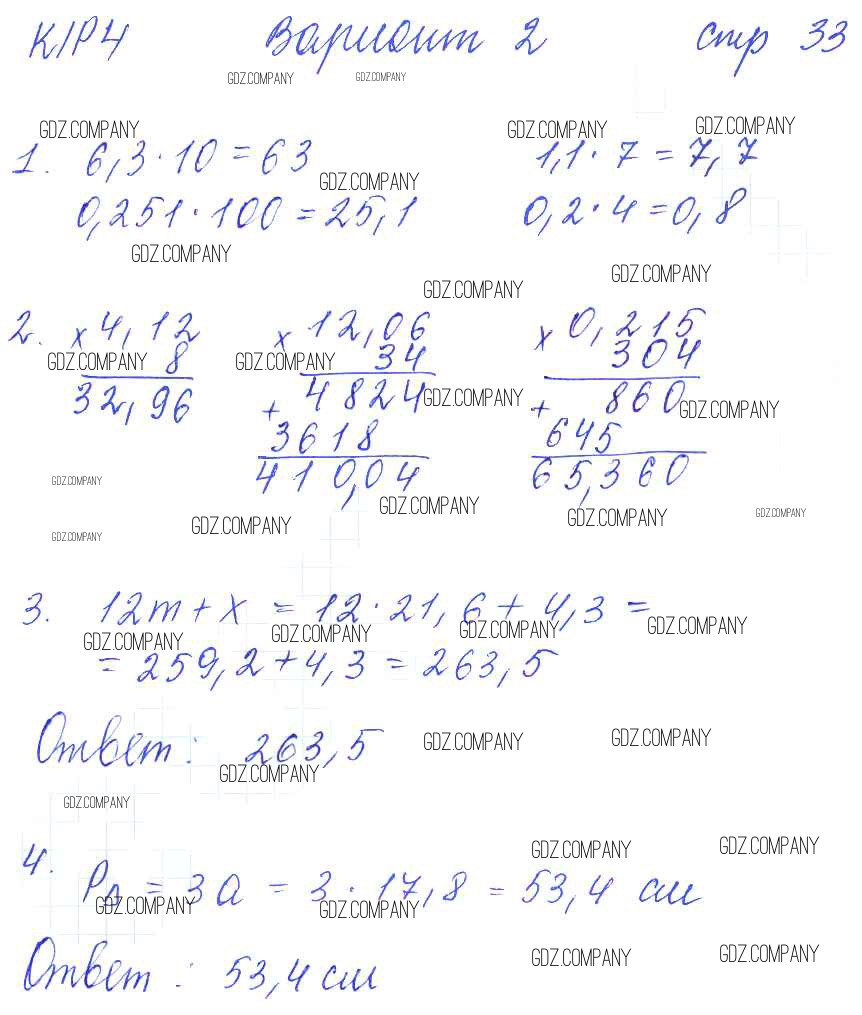 К/Р4 Вариант 2 стр 33
GDZ.COMPANY GDZ.COMPANY
GDZ.COMPANY GDZ.COMPANY GDZ.COMPANY
1. 6,3·10=63 1,1·7=7,7
GDZ.COMPANY
0,251·100=25,1 0,2·4=0,8
GDZ.COMPANY GDZ.COMPANY
GDZ.COMPANY
2. x 4,12 x 12,06 x 0,215
GDZ.COMPANY 8 GDZ.COMPANY 34 304
32,96 + 4824 GDZ.COMPANY + 860 GDZ.COMPANY
3618 645
410,04 65,360
GDZ.COMPANY
GDZ.COMPANY GDZ.COMPANY GDZ.COMPANY GDZ.COMPANY
GDZ.COMPANY
3. 12m+x = 12·21,6+4,3=
GDZ.COMPANY GDZ.COMPANY GDZ.COMPANY GDZ.COMPANY
=259,2+4,3=263,5
Ответ: 263,5 GDZ.COMPANY GDZ.COMPANY
GDZ.COMPANY
GDZ.COMPANY
4. GDZ.COMPANY GDZ.COMPANY
PΔ = 3a = 3·17,8=53,4 см
GDZ.COMPANY GDZ.COMPANY
Ответ: 53,4 см GDZ.COMPANY GDZ.COMPANY